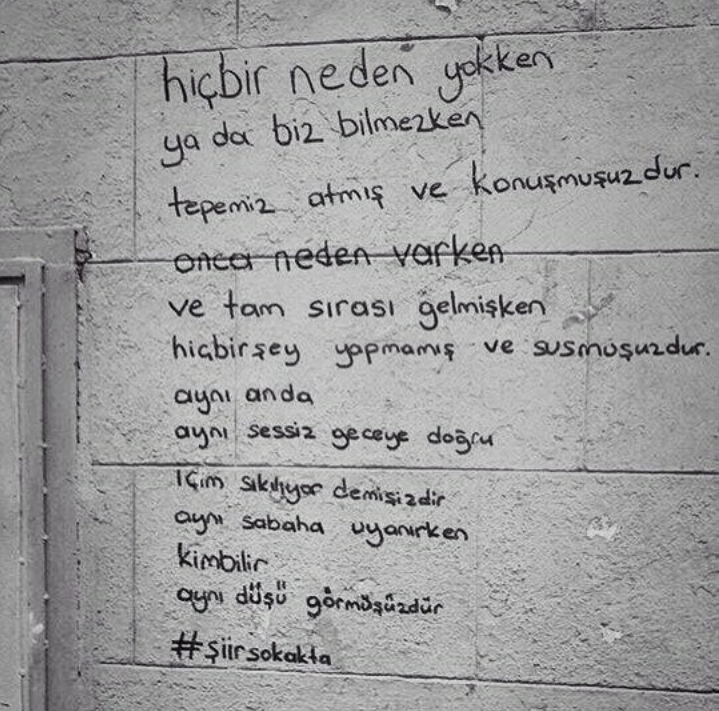 hiçbir neden yokken
ya da biz bilmezken
tepemiz atmış ve konuşmuşuzdur.
onca neden varken
ve tam sırası gelmişken
hiçbirşey yapmamış ve susmuşuzdur.
aynı anda
aynı sessiz geceye doğru
içim sıkılıyor demişizdir
aynı sabaha uyanırken
kimbilir
aynı düşü görmüşüzdür
#şiirsokakta